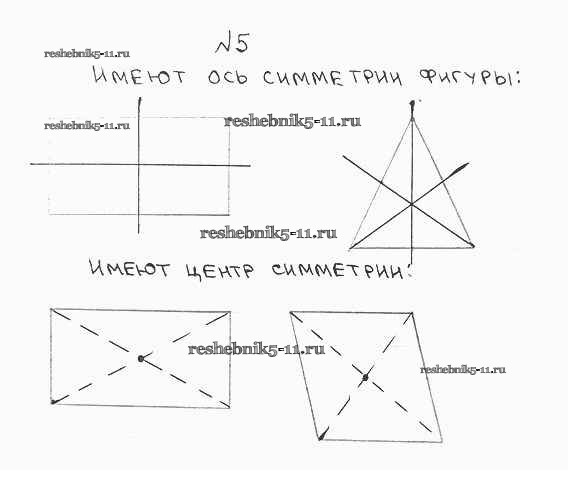 №5
reshebnik5-11.ru
ИМЕЮТ ОСЬ СИММЕТРИИ ФИГУРЫ:
reshebnik5-11.ru
reshebnik5-11.ru
reshebnik5-11.ru
ИМЕЮТ ЦЕНТР СИММЕТРИИ:
reshebnik5-11.ru
reshebnik5-11.ru